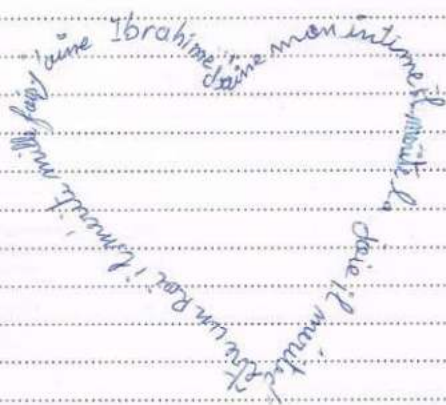 j'aime Ibrahime j'aime mon intime il mérite la joie il mérite d'être un Roi il mérite mille fois